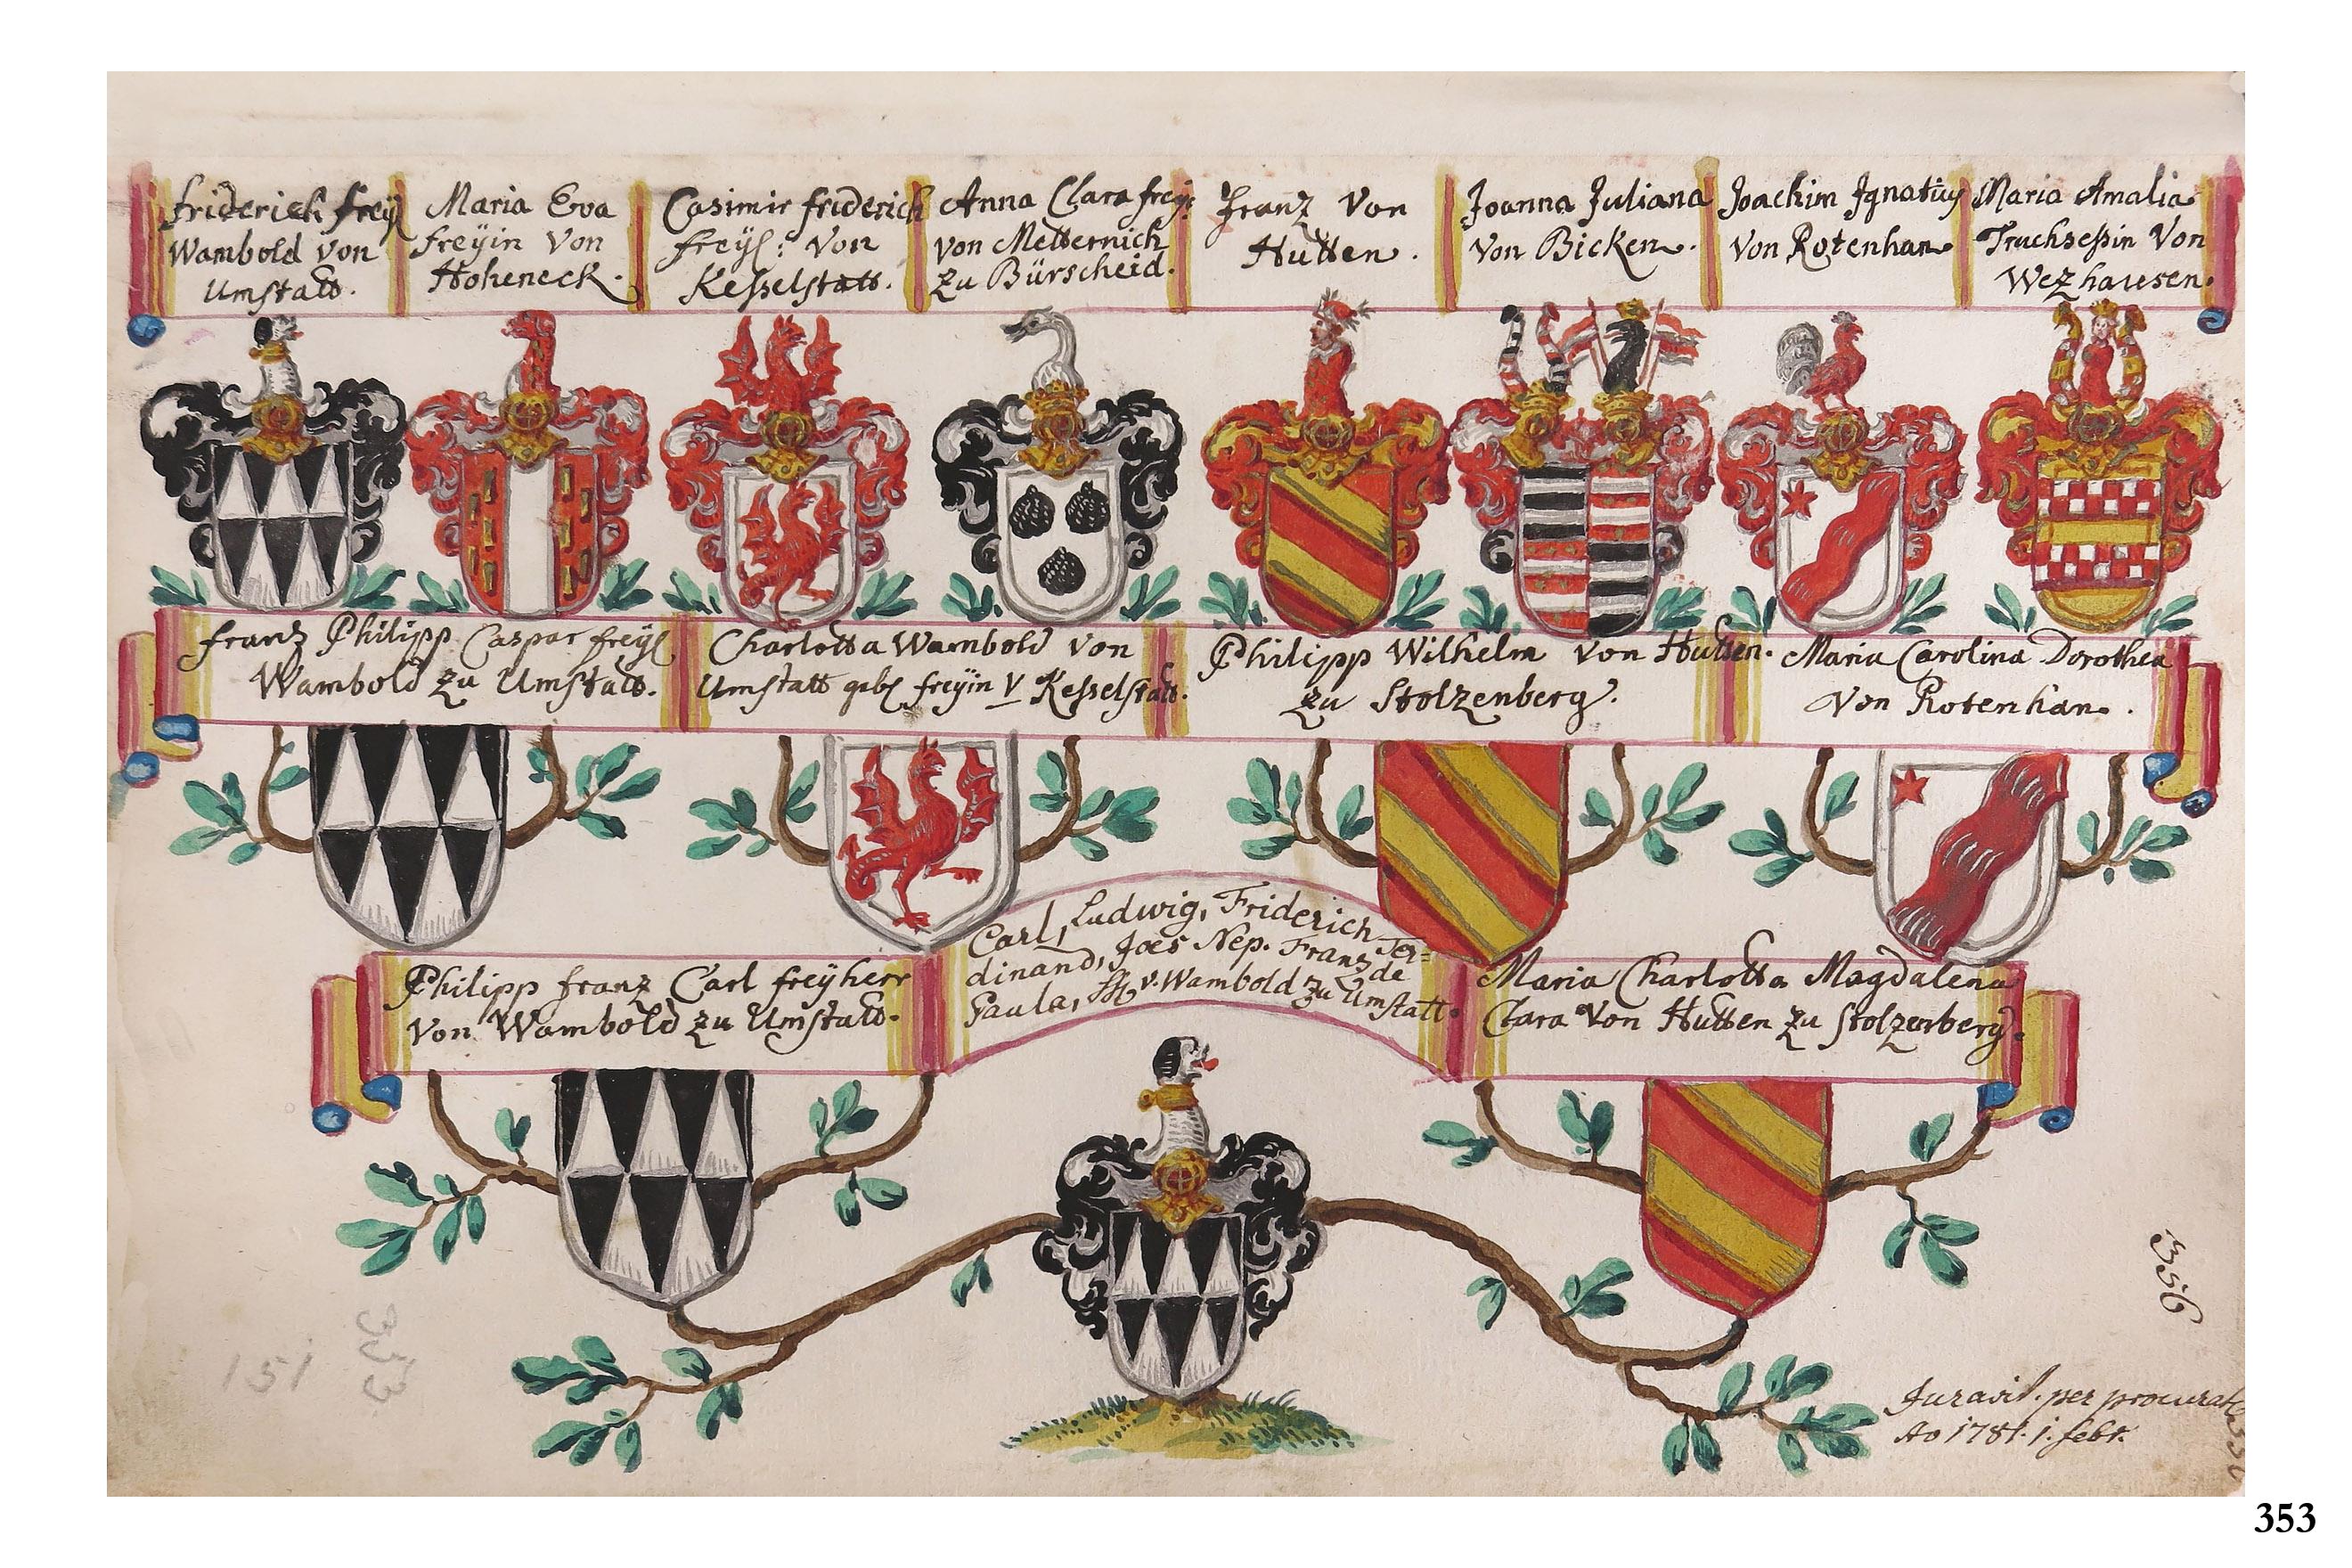 Friderich Freÿ
Wambold von
Umstatt.
Maria Eva
Freÿin von
Hoheneck.
Casimir Friderich
Freÿh: von
Kesselstatt.
Anna Clara Freÿ:
von Metternich
zu Bürscheid.
Franz von
Hutten.
Joanna Juliana
von Bicken.
Joachim Ignatiuſ
von Rotenhan
Maria Amalia
Truchseßin von
Wezhausen.
Franz Philipp Caspar Freÿh
Wambold zu Umstatt.
Charlotta Wambold von
Umstatt gebh Freÿin V Kesselstatt.
Philipp Wilhelm von Hutten.
zu Stolzenberg.
Maria Carolina Dorothea
von Rotenhan.
Carl, Ludwig, Friderich
Fer=
dinand, Joes Nep. Franz de
Paula, v. Wambold zu Umstatt.
Philipp Franz Carl Freÿherr
von Wambold zu Umstatt.
Maria Charlotta Magdalena
Clara von Hutten zu Stolzenberg.
356
151
353
Juravit. per procurat
Ao 1781. 1. febr.
353